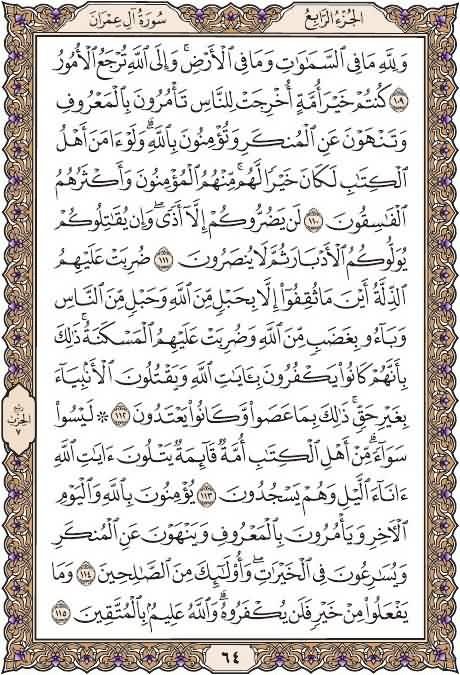 الجزء الرابع
سورة آل عمران
وَلِلَّهِ مَا فِي السَّمَاوَاتِ وَمَا فِي الْأَرْضِ ۚ وَإِلَى اللَّهِ تُرْجَعُ الْأُمُورُ
١٠٩ كُنتُمْ خَيْرَ أُمَّةٍ أُخْرِجَتْ لِلنَّاسِ تَأْمُرُونَ بِالْمَعْرُوفِ
وَتَنْهَوْنَ عَنِ الْمُنكَرِ وَتُؤْمِنُونَ بِاللَّهِ ۗ وَلَوْ ءَامَنَ أَهْلُ
الْكِتَابِ لَكَانَ خَيْرًا لَّهُم ۚ مِّنْهُمُ الْمُؤْمِنُونَ وَأَكْثَرُهُمُ
الْفَاسِقُونَ ١١٠ لَن يَضُرُّوكُمْ إِلَّا أَذًى ۖ وَإِن يُقَاتِلُوكُمْ
يُوَلُّوكُمُ الْأَدْبَارَ ثُمَّ لَا يُنصَرُونَ ١١١ ضُرِبَتْ عَلَيْهِمُ
الذِّلَّةُ أَيْنَ مَا ثُقِفُوا إِلَّا بِحَبْلٍ مِّنَ اللَّهِ وَحَبْلٍ مِّنَ النَّاسِ
وَبَاءُو بِغَضَبٍ مِّنَ اللَّهِ وَضُرِبَتْ عَلَيْهِمُ الْمَسْكَنَةُ ۚ ذَٰلِكَ
بِأَنَّهُمْ كَانُوا يَكْفُرُونَ بِـَٔايَاتِ اللَّهِ وَيَقْتُلُونَ الْأَنۢبِيَاءَ
بِغَيْرِ حَقٍّ ۚ ذَٰلِكَ بِمَا عَصَوا وَّكَانُوا يَعْتَدُونَ ١١٢ ۞ لَيْسُوا
سَوَاءً ۗ مِّنْ أَهْلِ الْكِتَابِ أُمَّةٌ قَائِمَةٌ يَتْلُونَ ءَايَاتِ اللَّهِ
ءَانَاءَ اللَّيْلِ وَهُمْ يَسْجُدُونَ ١١٣ يُؤْمِنُونَ بِاللَّهِ وَالْيَوْمِ
الْآخِرِ وَيَأْمُرُونَ بِالْمَعْرُوفِ وَيَنْهَوْنَ عَنِ الْمُنكَرِ
وَيُسَارِعُونَ فِي الْخَيْرَاتِ ۖ وَأُولَٰئِكَ مِنَ الصَّالِحِينَ ١١٤ وَمَا
يَفْعَلُوا مِنْ خَيْرٍ فَلَن يُكْفَرُوهُ ۗ وَاللَّهُ عَلِيمٌۢ بِالْمُتَّقِينَ ١١٥
ربع
الحزب
٧
٦٤